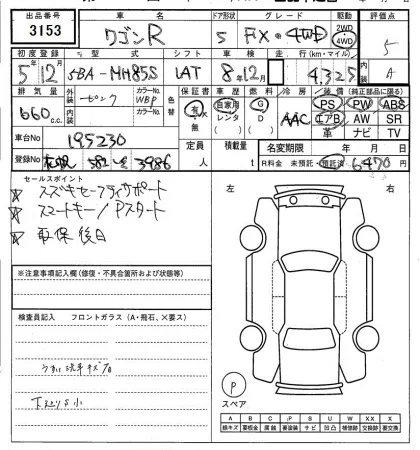 出品番号 車名 ドア形状 グレード 駆動 評価点
3153 ワゴンR 5 FX 4WD 2WD 4WD 5
初度登録 型式 シフト 車検 走行(km・マイル) 内装
5年12月 5BA-MH85S IAT 8年12月 4,325 A
排気量 外装 カラーNo. 色替 保証書 車歴 燃料 冷房 装備(純正部品に限る)
660c.c. ピンク WBP 有 無 自家用 レンタ G D AAC PS PW ABS
内装 カラーNo. エアB AW SR
車台No 195230 定員 人 積載量 t 革 ナビ TV
登録No 582 3986 名変期限 年 月 日
R料金 未預託・預託済 6470円
セールスポイント
スズキセーフティサポート
スマートキー/Pスタート
車保後日
左 右
※注意事項記入欄(修復・不具合箇所および状態等)
検査員記入 フロントガラス(A・飛石、×要ス)
P
スペア
A B C P S U W X XX
線キズ 要板金 腐蝕 要塗装 サビ 凹凸 補修跡 要交換 交換跡